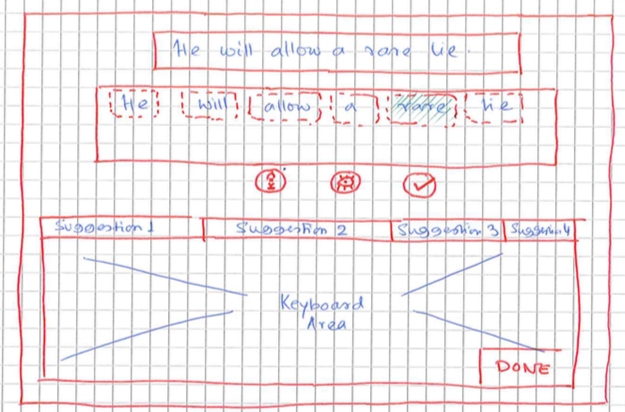 He will allow a rare lie.
He will allow a rare lie
Suggestion 1 Suggestion 2 Suggestion 3 Suggestion 4
Keyboard
Area
DONE